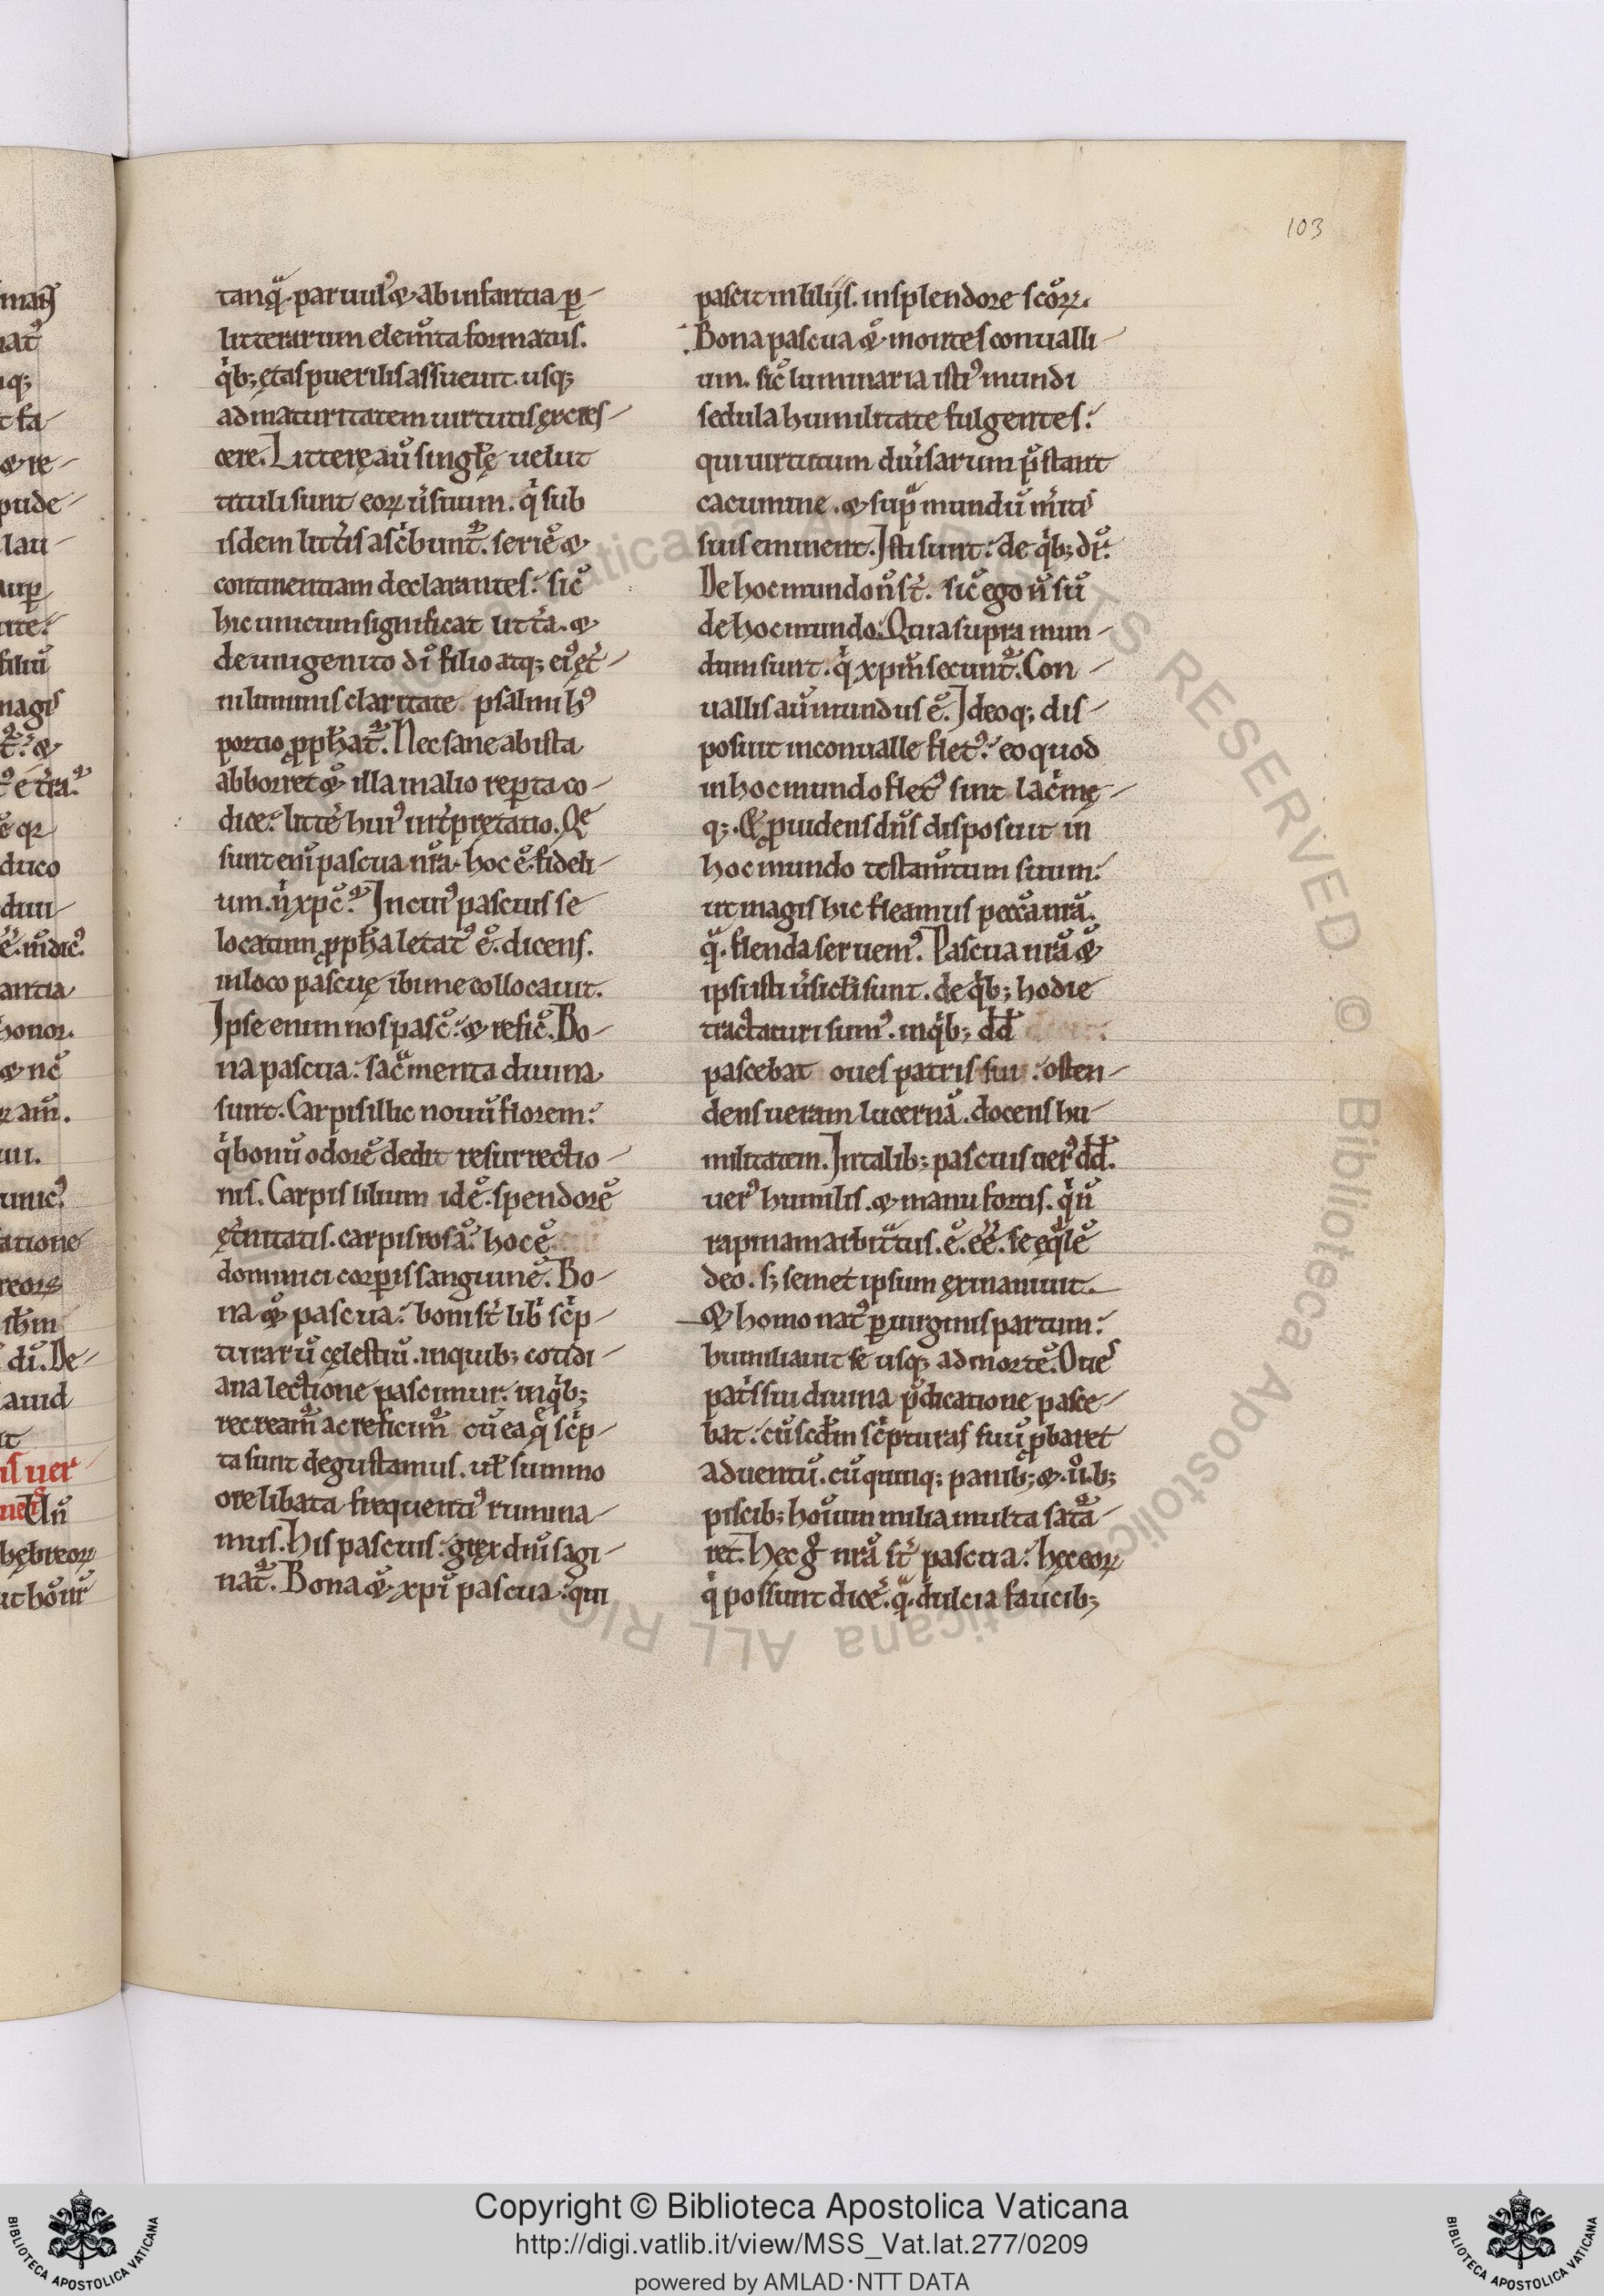 103
tanq̃. paruul᷒ & ab infantia ꝑ
litterarum elem̅ta formatus.
qͥb; ętas puerilis assueuit. usq;
ad maturitatem uirtutis excres
cere. Litterę aū singlę uelut
tituli sunt eoꝝ ūsuum. qͥ sub
isdem litt̅is asc̅buntᷣ. seriē &
continentiam declarantes. sic̅
hic unctum significat litt̅a. &
de unigenito di̅ filio atq; ei᷒ ęt̅
ni luminis claritate psalmi h᷒
portio ꝓph̅atᷣ. Nec sane ab ista
abborret &̅ illa in alio reꝑta co
dice. litt̅e hui᷒ int̅pretatio. Qe
sunt eni̅ pascua nr̅a. hoc ē. fideli
um. n̅ xpc̅? In cui᷒ pascuis se
locatum ꝓph̅a letat᷒ ē. dicens.
in loco pascuę ibi me collocauit.
Ipse enim nos pasc̅. & refic̅. Bo
na pascua. sac̅menta diuina
sunt. Carpis illic nouū florem.
qͥ bonū odorē dedit resurrectio
nis. Carpis lilium id ē. spendorē
ęt̅nitatis. carpis rosā. hoc ē
dominici corꝑis sanguinē. Bo
na &̅ pascua. boni st̅ libͥ sc̅p
turarū cęlestiū. in quib; cotidi
ana lectione pascimur. in qͥb;
recream᷒ ac reficim᷒ cū ea q̅ sc̅p
ta sunt degustamus. ul̅ summo
ore libata frequenti᷒ rumina
mus. His pascuis. grex diu̅ sagi
natᷣ. Bona &̅ xpi̅ pascua. qui
pascit in lilijs. in splendore sc̅oꝝ.
Bona pascua &̅ montes conualli
um. sic̅ luminaria isti᷒ mundi
sedula humilitate fulgentes.
qui uirtutum diu̅sarum p̅stant
cacumine. & sup̅ mundū m̅itis
suis eminent. Isti sunt. de qͥb; dr̅.
De hoc mundo n̅ st̅. sic̅ ego n̅ su̅
de hoc mundo. Qui a supra mun
dum sunt. qͥ xpm̅ secuntᷣ. Con
uallis aū mundus ē. Ideoq; dis
posuit in conualle flet᷒. eo quod
in hoc mundo flet᷒ sint lac̅mę
q;. & ꝓuidens dn̅s disposuit in
hoc mundo testam̅tum suum.
ut magis hic fleamus pecc̅a nr̅a.
q̃. flenda seruem᷒. Pascua nr̅a &̅
ipsi isti ūsicl̅i sunt. de qͥb; hodie
tractaturi sum᷒. in qͥb; dd̅
pascebat oues patris sui. osten
dens ueram lucernā. docens hu
militatem. In talib; pascuis uer᷒ dd̅.
uer᷒ humilis. & manu fortis. qͥ n̅
rapinam arbit̅tus. ē. ēē. se ęq̅lē
deo. s; semet ipsum exinaniuit.
& homo nat᷒ ꝑ uirginis partum.
humiliauit se usq; ad mortē. Oues
pat̅s sui diuina p̅dicatione pasce
bat. cū scd̅m sc̅pturas suū ꝓbaret
aduentū. cū quinq; panib; & .ii.b;
piscib; hoi̅um milia multa satᷣa
ret. Hęc g̊ nr̅a st̅ pascua. hęc eoꝝ
qͥ possunt dicē. q̃. dulcia faucib;
Copyright © Biblioteca Apostolica Vaticana
http://digi.vatlib.it/view/MSS_Vat.lat.277/0209
powered by AMLAD·NTT DATA